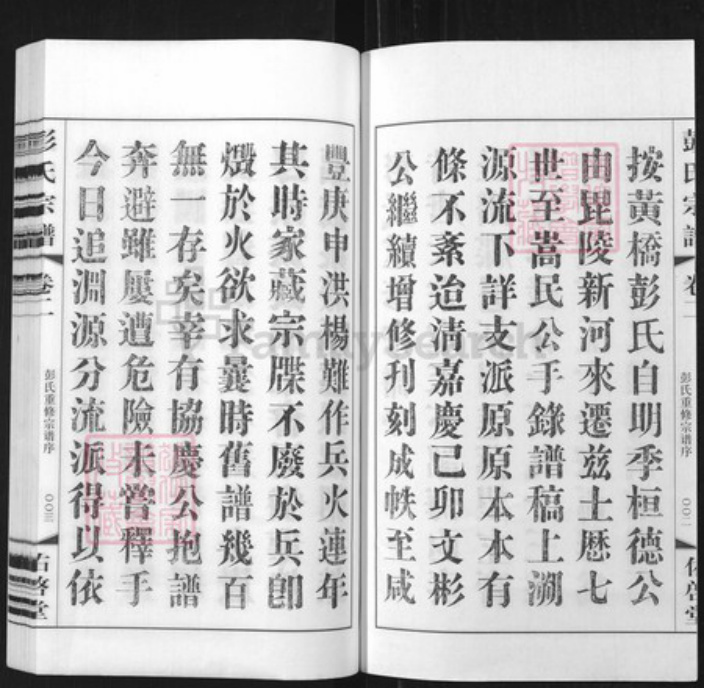 按黃橋彭氏自明季桓德公
由毘陵新河來遷兹土歴七
世至嵩民公手錄譜稿上溯
源流下詳支派原原本本有
條不紊迨清嘉慶己卯文彬
公繼續增修刊刻成帙至咸
豐庚申洪楊難作兵火連年
其時家藏宗牒不廢於兵卽
燬於火欲求曩時舊譜幾百
無一存矣幸有協慶公抱譜
奔避雖屢遭危險未嘗釋手
今日追淵源分流派得以依
彭氏宗譜
卷二
彭氏重修宗谱序
〇〇二
彭氏宗譜
卷二
彭氏重修宗谱序
〇〇三
佑啓堂
FamilySearch